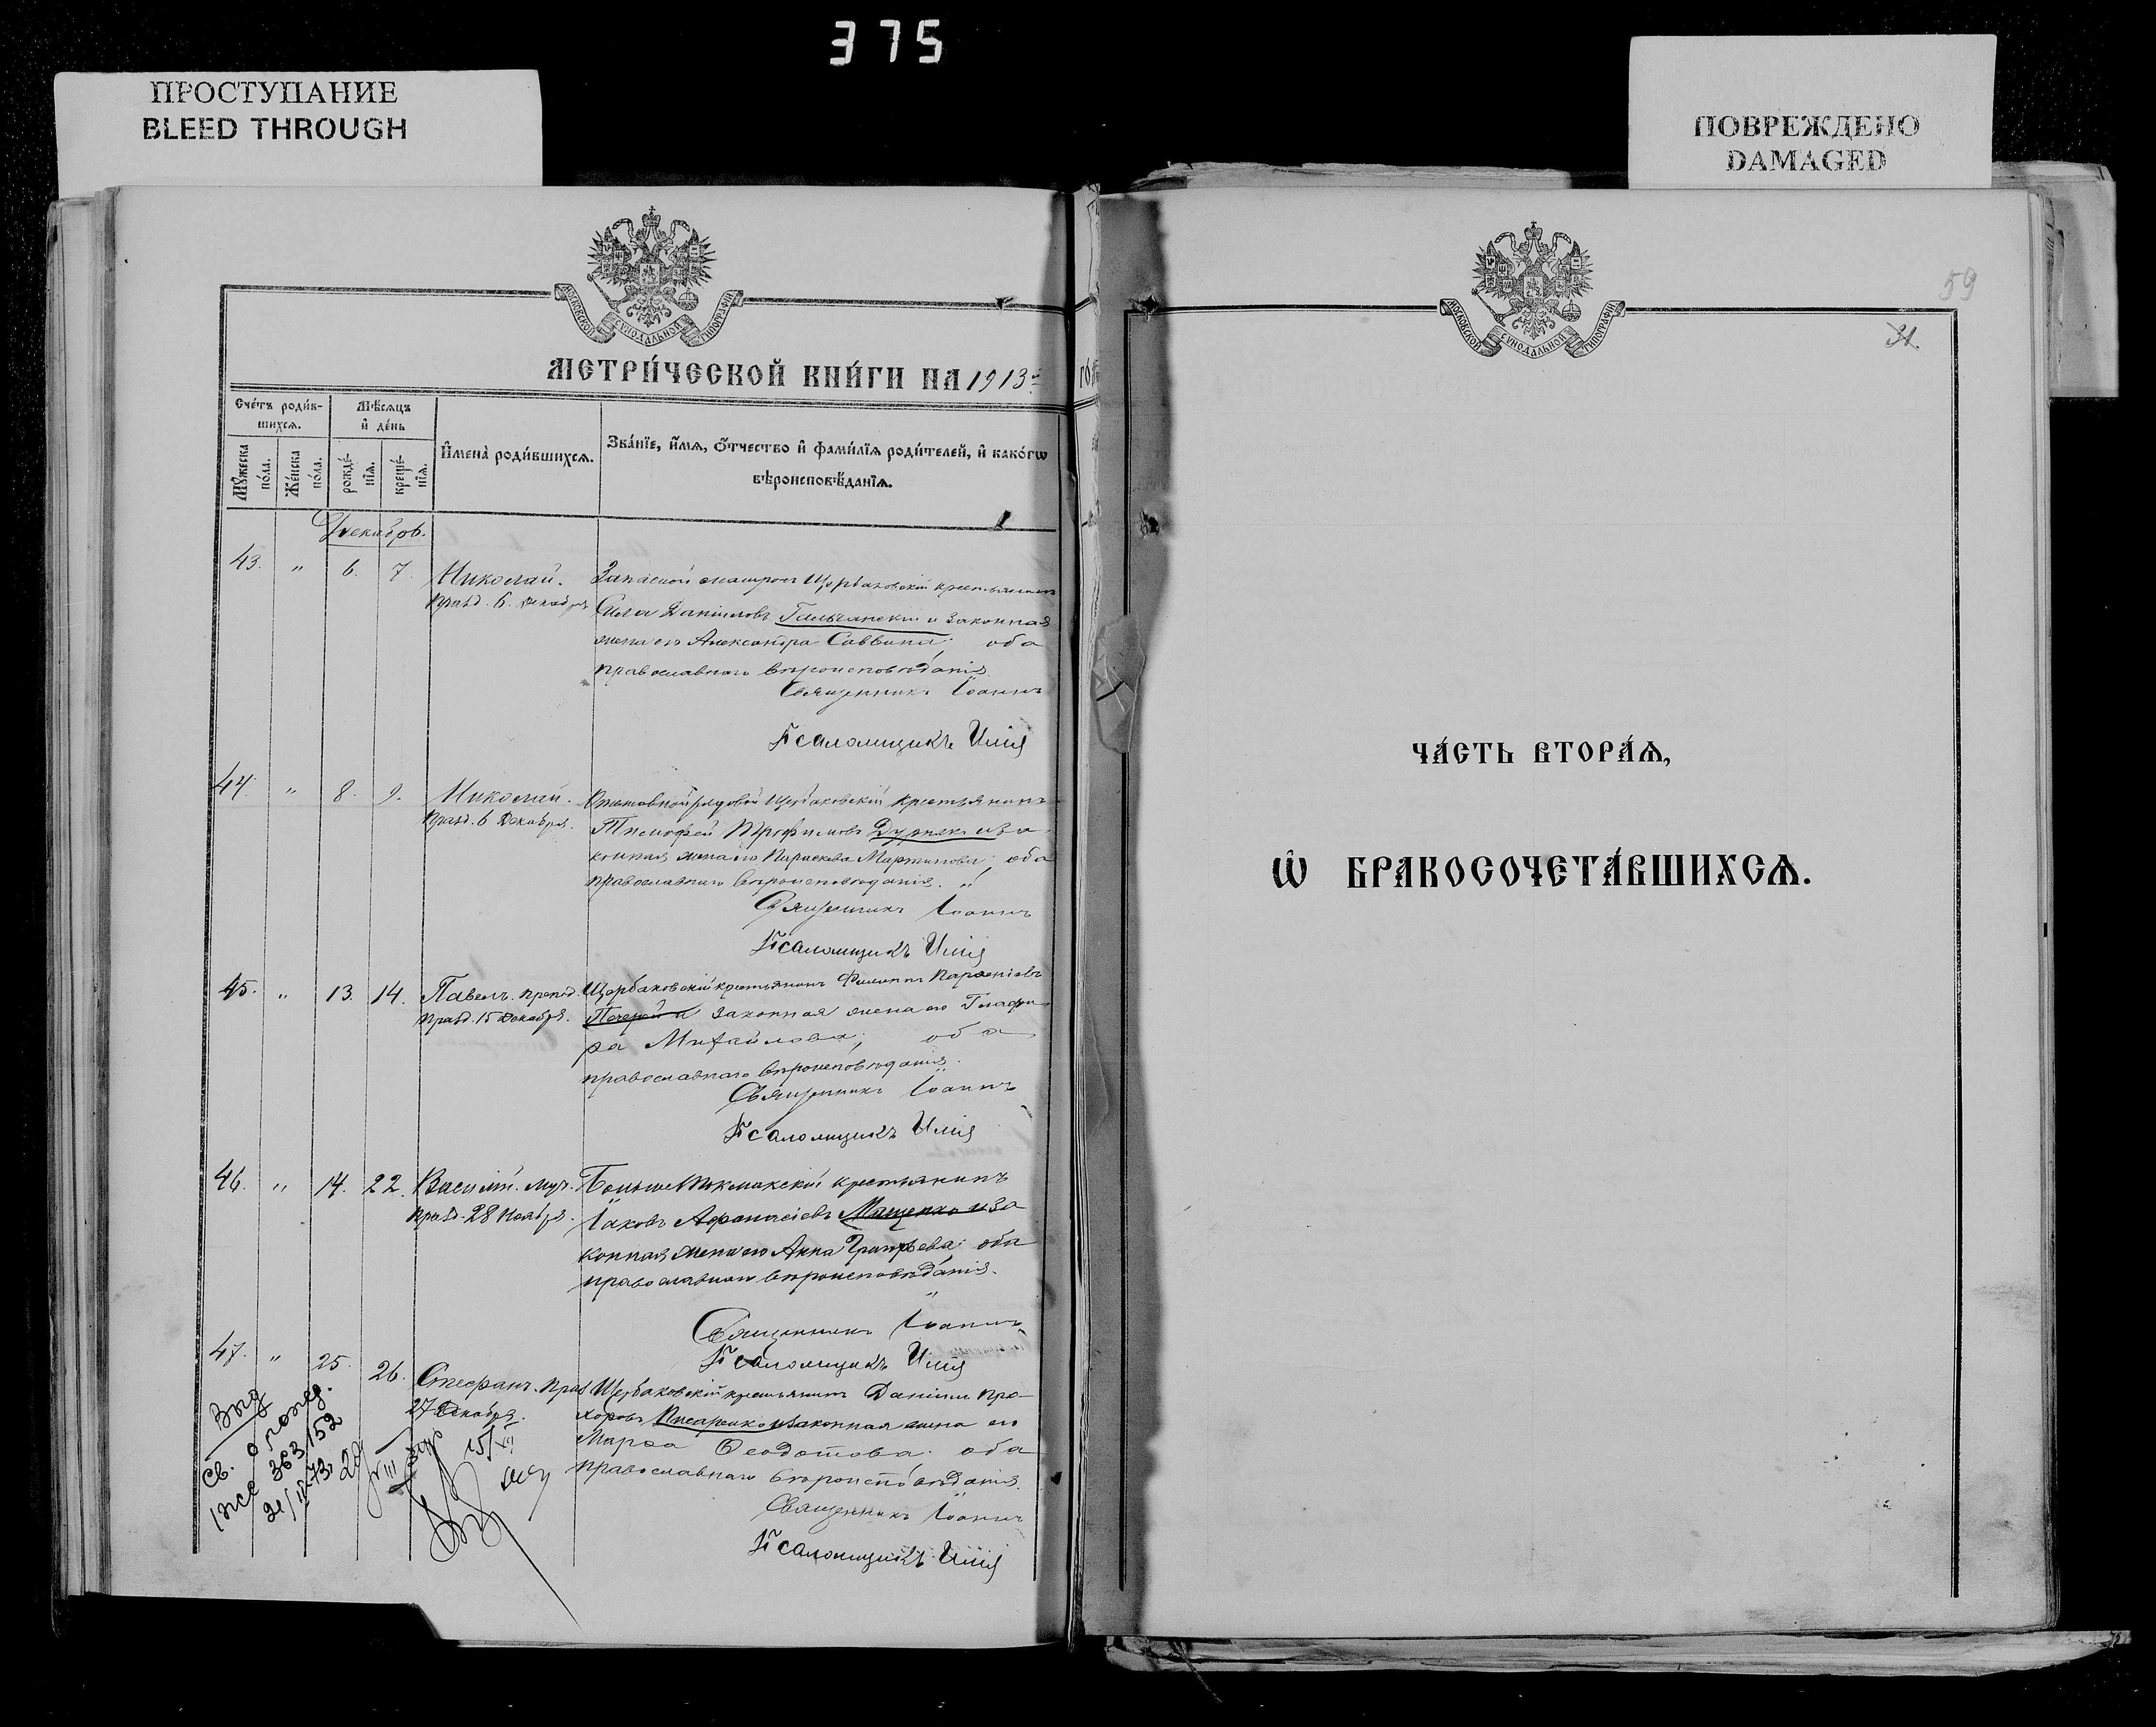 375
ПРОСТУПАНИЕ
BLEED THROUGH
ПОВРЕЖДЕНО
DAMAGED
МОСКОВСКОЙ СѴНОДАЛЬНОЙ ТИПОГРАФІИ
МЕТРИ́ЧЕСКОЙ КНИ́ГИ НА 1913
Сче́тъ роди́в-
шихсѧ.
Мѣ́сѧцъ
и҆ де́нь
Мꙋ́жеска
по́ла.
Же́нска
по́ла.
рожде́-
нїѧ.
креще́-
нїѧ.
И҆мена̀ роди́вшихсѧ.
Зва́нїе, и҆́мѧ, ѻ҆́тчество и҆ фами́лїѧ роди́телей, и҆ како́гѡ
вѣроисповѣ́данїѧ.
Декабрь.
43. " 6. 7. Николай.
Празд. 6. Декабря
Запасной матросъ Щербаковскій крестьянинъ
Сила Даніиловъ и законная
жена его Александра Саввина; оба
православнаго вѣроисповѣданія.
Священникъ Іоаннъ
Псаломщикъ Илія
44. " 8. 9. Николай.
Празд. 6 Декабря.
рядовой Щербаковскій крестьянинъ
Тимофей Трофимовъ Дурнякъ и за-
конная жена его Параскева Мартинова; оба
православнаго вѣроисповѣданія. "
Священникъ Іоаннъ
Псаломщикъ Илія
45. " 13. 14. Павелъ. препод.
Празд. 15 Декабря.
Щербаковскій крестьянинъ Филиппъ Парѳеніевъ
и законная жена его Глафи-
ра Михайлова; оба
православнаго вѣроисповѣданія.
Священникъ Іоаннъ
Псаломщикъ Илія
46. " 14. 22. Василій. муч.
Празд. 28 Ноября.
БольшеТокмакскій крестьянинъ
Іаковъ Аѳанасіевъ Мащенко и за
конная жена его Анна Григорьева; оба
православнаго вѣроисповѣданія.
Священникъ Іоаннъ
Псаломщикъ Илія
47. " 25. 26. Стефанъ. Празд
27 Декабря.
Щербаковскій крестьянинъ Даніилъ Про-
хоровъ Писаренко и законная жена его
Марѳа Ѳеодотова; оба
православнаго вѣроисповѣданія.
Священникъ Іоаннъ
Псаломщикъ Илія
Выд
св. о рожд.
363152
МОСКОВСКОЙ СѴНОДАЛЬНОЙ ТИПОГРАФІИ
59
31.
ЧА́СТЬ ВТОРА́Ѧ,
Ѡ҆ БРАКОСОЧЕТА́ВШИХСѦ.